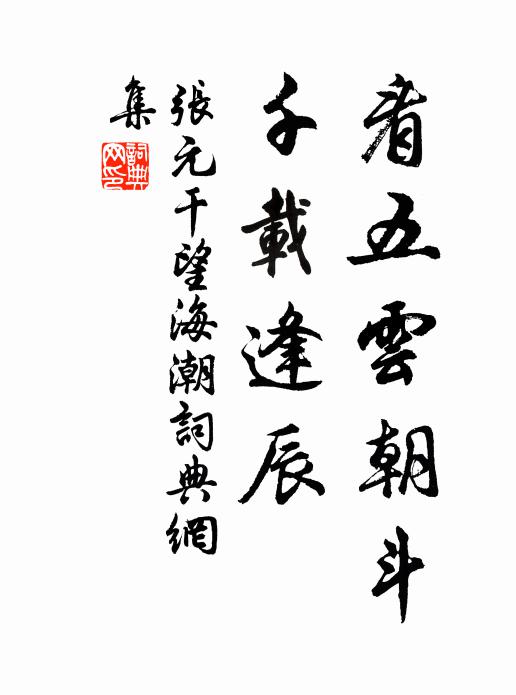 看五雲朝斗
千載逢辰
張元干望海潮詞典網
集
詞典網印